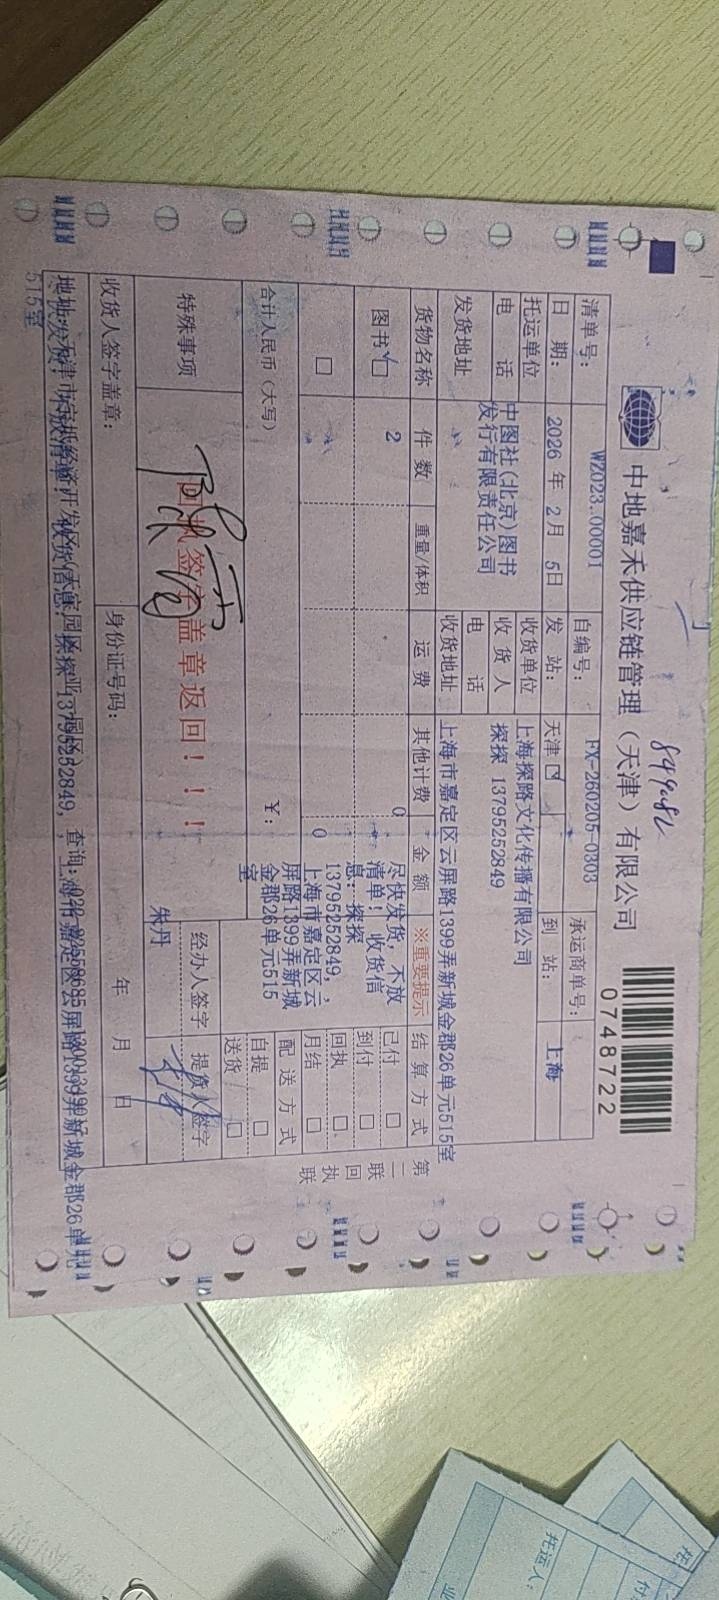 中地嘉禾供应链管理（天津）有限公司
0748722
清单号： WZ023.00001 自编号： FX-260205-0303 承运商单号：
日 期： 2026 年 2月 5日 发 站： 天津 到 站： 上海
托运单位 中图社(北京)图书发行有限责任公司 收货单位 上海探路文化传播有限公司
电 话 收 货 人 探探 13795252849
电 话
发货地址 收货地址 上海市嘉定区云屏路1399弄新城金郡26单元515室
货物名称 件 数 重量/体积 运 费 其他计费 金 额 ※重要提示 结 算 方 式
图书 2 0
0
尽快发货，不放
清单！ 收货信
息：探探
13795252849，，
上海市嘉定区云
屏路1399弄新城
金郡26单元515
室
已付 □
到付 □
回执 □
月结 □
配 送 方 式
自提 □
送货 □
合计人民币（大写） ¥：
特殊事项 回执签字盖章返回！！！
经办人签字 提货人签字
朱丹
收货人签字盖章： 身份证号码： 年 月 日
515室
第二联 回执联
托运人：